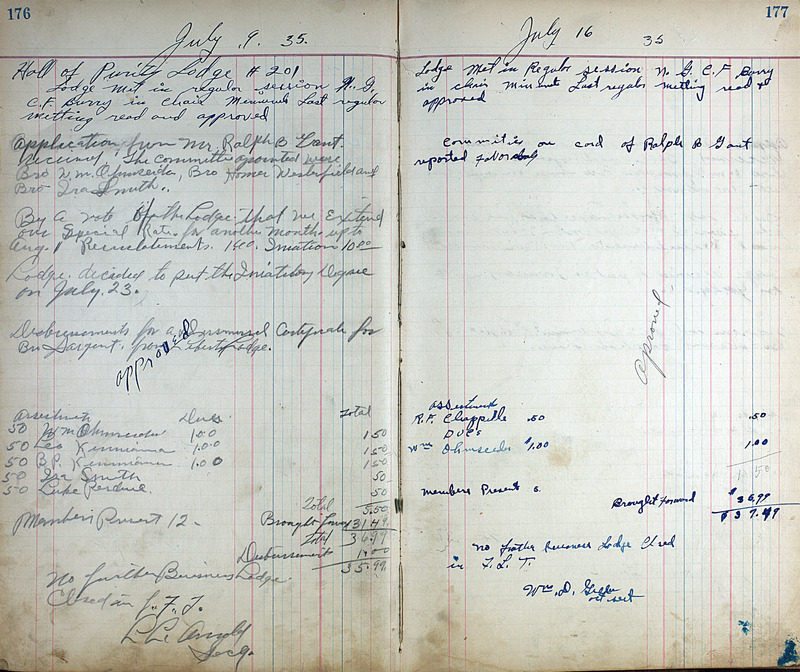 176
July 9. 35.
Hall of Purity Lodge # 201
Lodge met in regular session N. G.
C.F. Burry in Chair Minnuts Last regular
metting read and approved
Application from Mr. Ralph B Gant
Received, The Committe apointed were
Bro Wm Ohmseider, Bro Homer Westerfield and
Bro Ira Smith.
By a vote of the Lodge that we Extend
our Special Rate for another month up to
Aug. 1 Reinstatement. 1.00. Iniation 10.00
Lodge decided to put the Iniatory Degree
on July. 23.
Disbursments for a Dismissal Certificate for
Bro Sargent. from Liberty Lodge.
approved
Assesments Dues Total
50 Wm Ohmseider 1.00 1.50
50 Leo 1.00 1.50
50 B.P. 1.00 1.50
50 Ira Smith 50
50 Luke Perdue. 50
Total 5.50
Members Present 12. Brought forward 31.49
Total 36.99
Disbursements 1.00
35.99
No further Business Lodge.
Closed in F. L. T.
Arnold
Secy.
177
July 16 35
Lodge Met in Regular session N. G. C. F Burry
in chair Minnuts Last regular Metting read &
approved
Committie on card of Ralph B Gant
reported faborably
aproved
assestments
R.F. Chappelle .50 .50
Dues
Wm Ohmseider $1.00 1.00
1.50
Members Present 6.
Brought forward $35.99
$37.49
No further Bussness Lodge Closed
in F. L. T.
Wm. D.
act sect